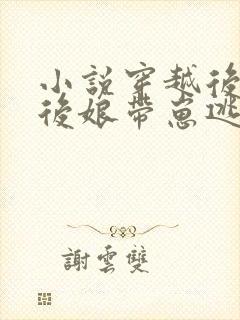 小説穿越後
後娘帶崽逃
謝雲雙